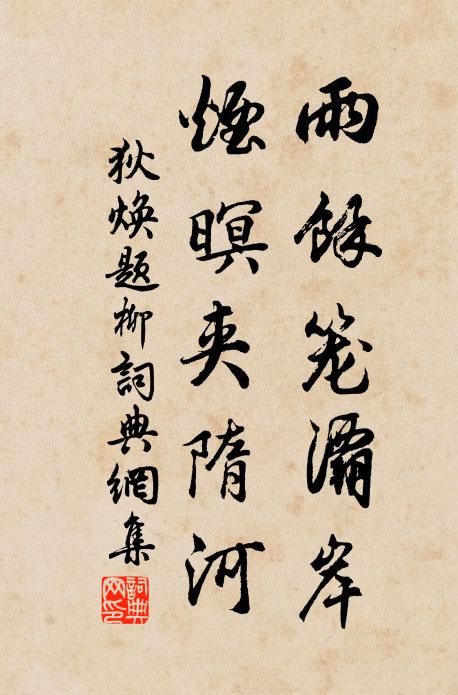 雨餘笼灞岸
煙暝夾隋河
狄煥题柳詞典網集
詞典网印